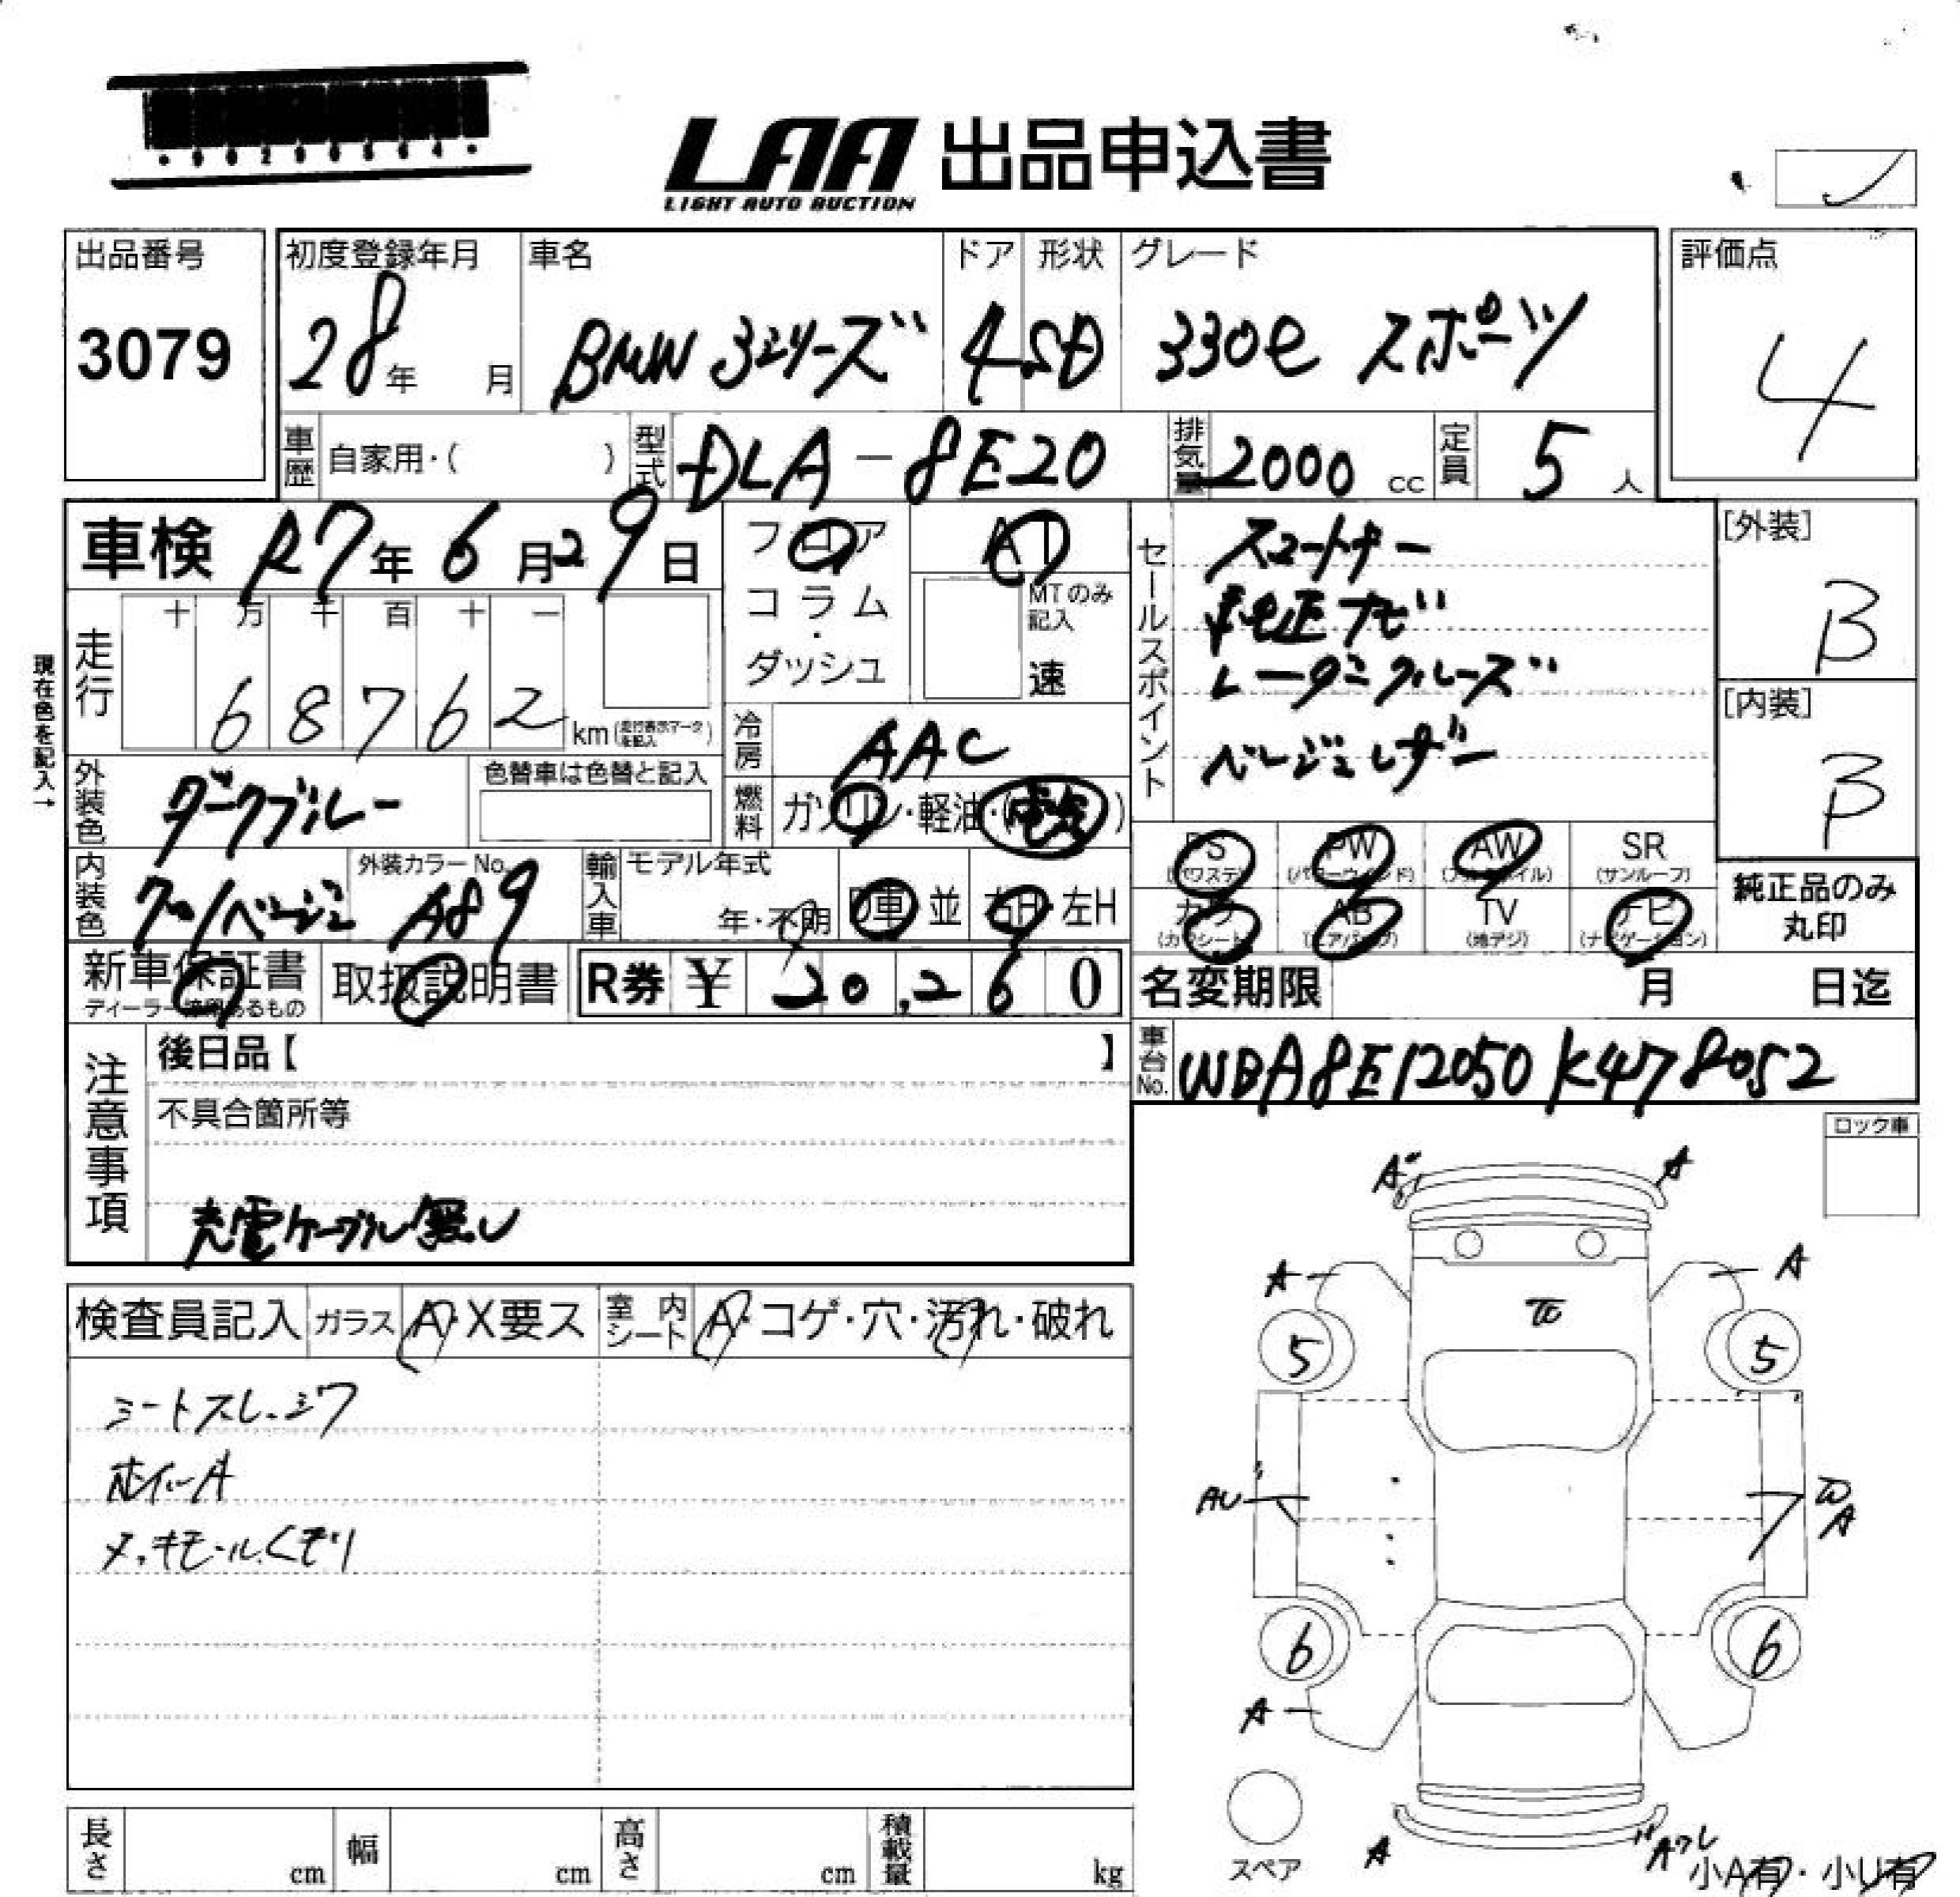 LAA 出品申込書
LIGHT AUTO AUCTION
出品番号
3079
初度登録年月
28年 月
車名
BMW 3シリーズ
ドア
4
形状
SD
グレード
330e スポーツ
評価点
4
車歴 自家用・( )
型式 DLA-8E20
排気量 2000 cc
定員 5 人
車検 R7年6月29日
フロア
コラム
・
ダッシュ
AT
MTのみ記入
速
セールスポイント
スマートキー
純正ナビ
レーダークルーズ
ベージュレザー
[外装]
B
[内装]
B
現在色を記入→
走行
十 万 千 百 十 一
68762 km
冷房 AAC
燃料 ガソリン・軽油・(電気)
外装色 ダークブルー
色替車は色替と記入
内装色 クロ/ベージュ
外装カラーNo. A89
輸入車
モデル年式
年・不明
D車 並
右H・左H
PS
(パワステ)
PW
(パワーウィンド)
AW
(アルミホイル)
SR
(サンルーフ)
カワ
(カワシート)
AB
(エアバッグ)
TV
(地デジ)
ナビ
(ナビゲーション)
純正品のみ
丸印
新車保証書
取扱説明書
R券 ¥ 20,260
名変期限 月 日迄
車台No. WBA8E12050K478052
注意事項
後日品【 】
不具合箇所等
充電ケーブル無し
ロック車
検査員記入
ガラス A・X要ス
室内シート A・コゲ・穴・汚れ・破れ
シートスレ、シワ
ホイールA
メッキモールくもり
A
A
A
A
5
5
AU
A
6
6
A
A
スペア
小A有・小U有
長さ cm
幅 cm
高さ cm
積載量 kg